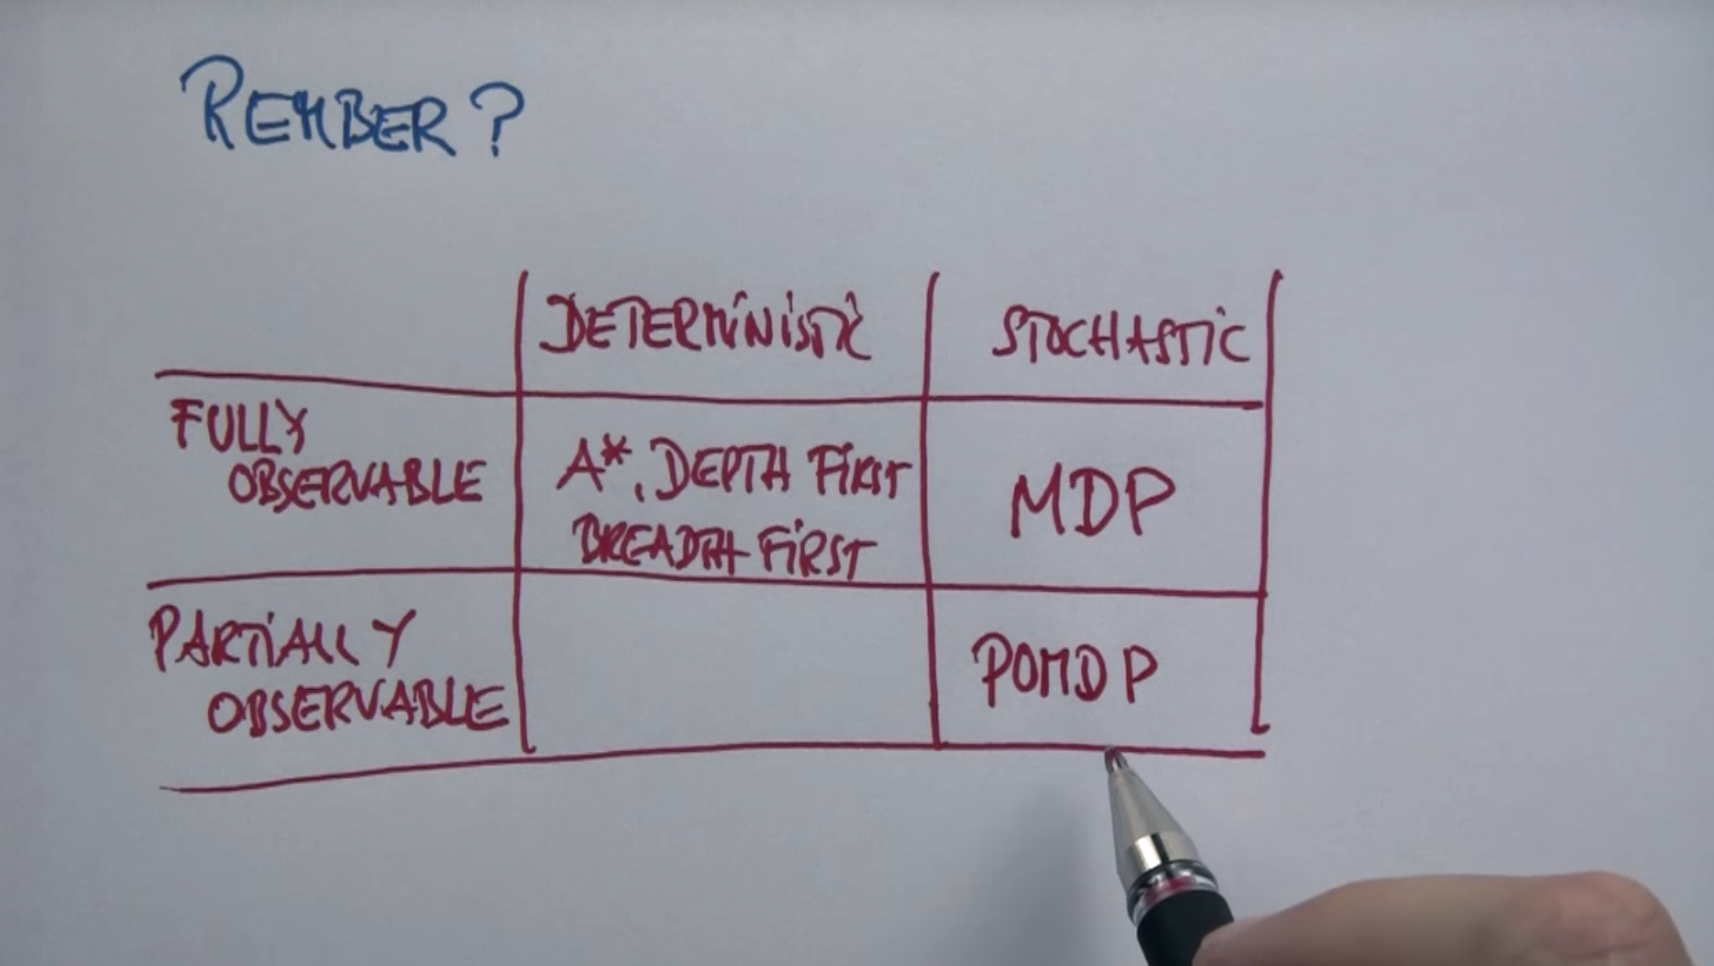 REMBER?
DETERMINISTIC STOCHASTIC
FULLY
OBSERVABLE
A*, DEPTH FIRST
BREADTH FIRST
MDP
PARTIALLY
OBSERVABLE
POMDP